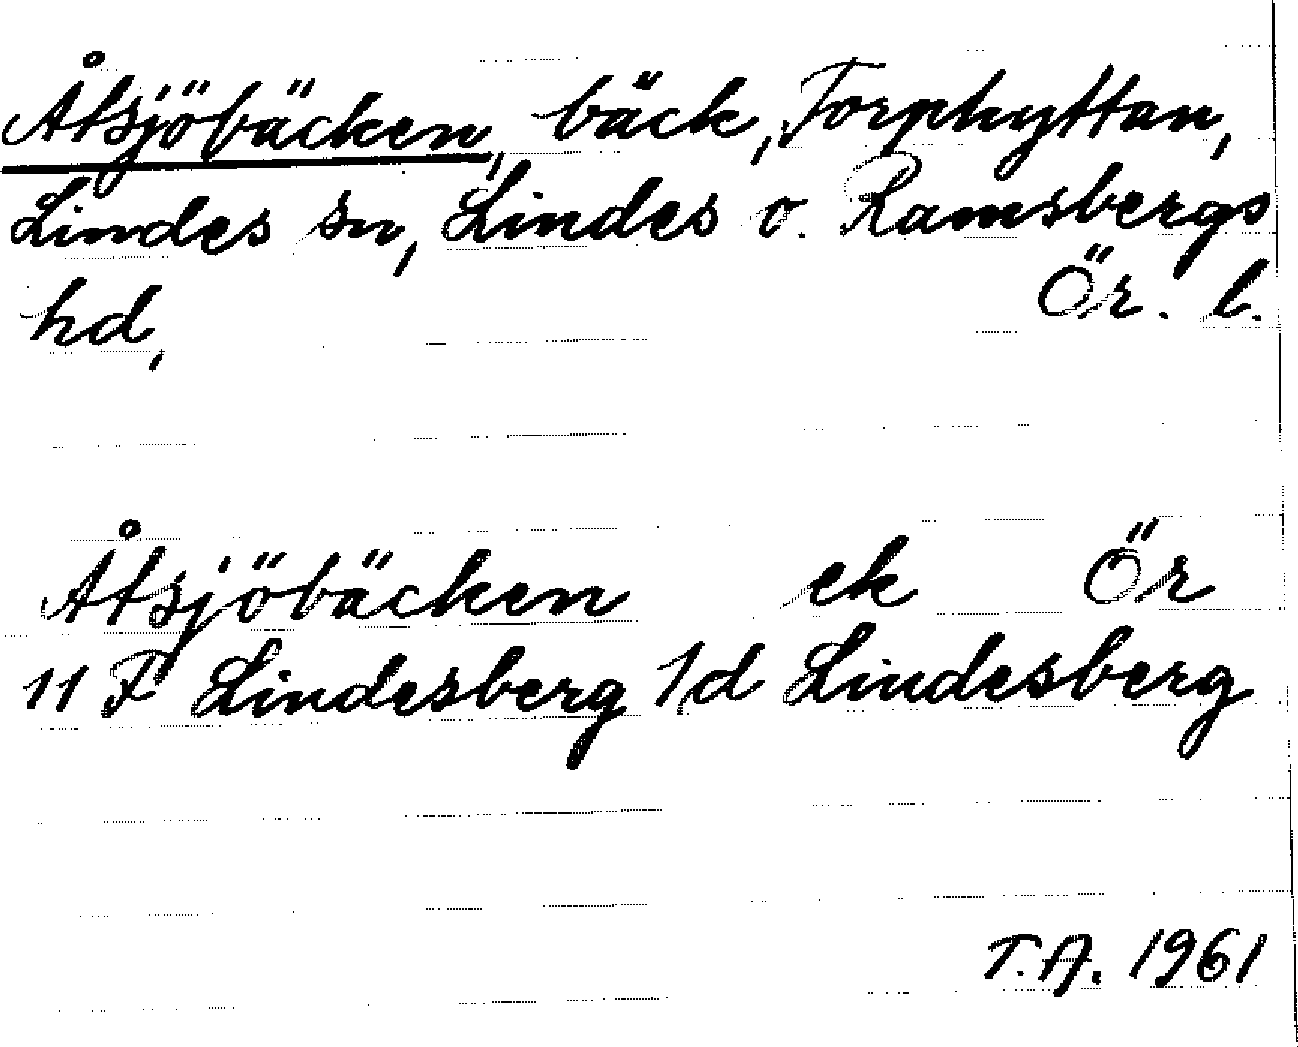 Åtsjöbäcken, bäck, Torphyttan,
Lindes sn, Lindes o. Ramsbergs
hd, Ör. l.
Åtsjöbäcken ek Ör
11 F Lindesberg 1d Lindesberg
T.A. 1961